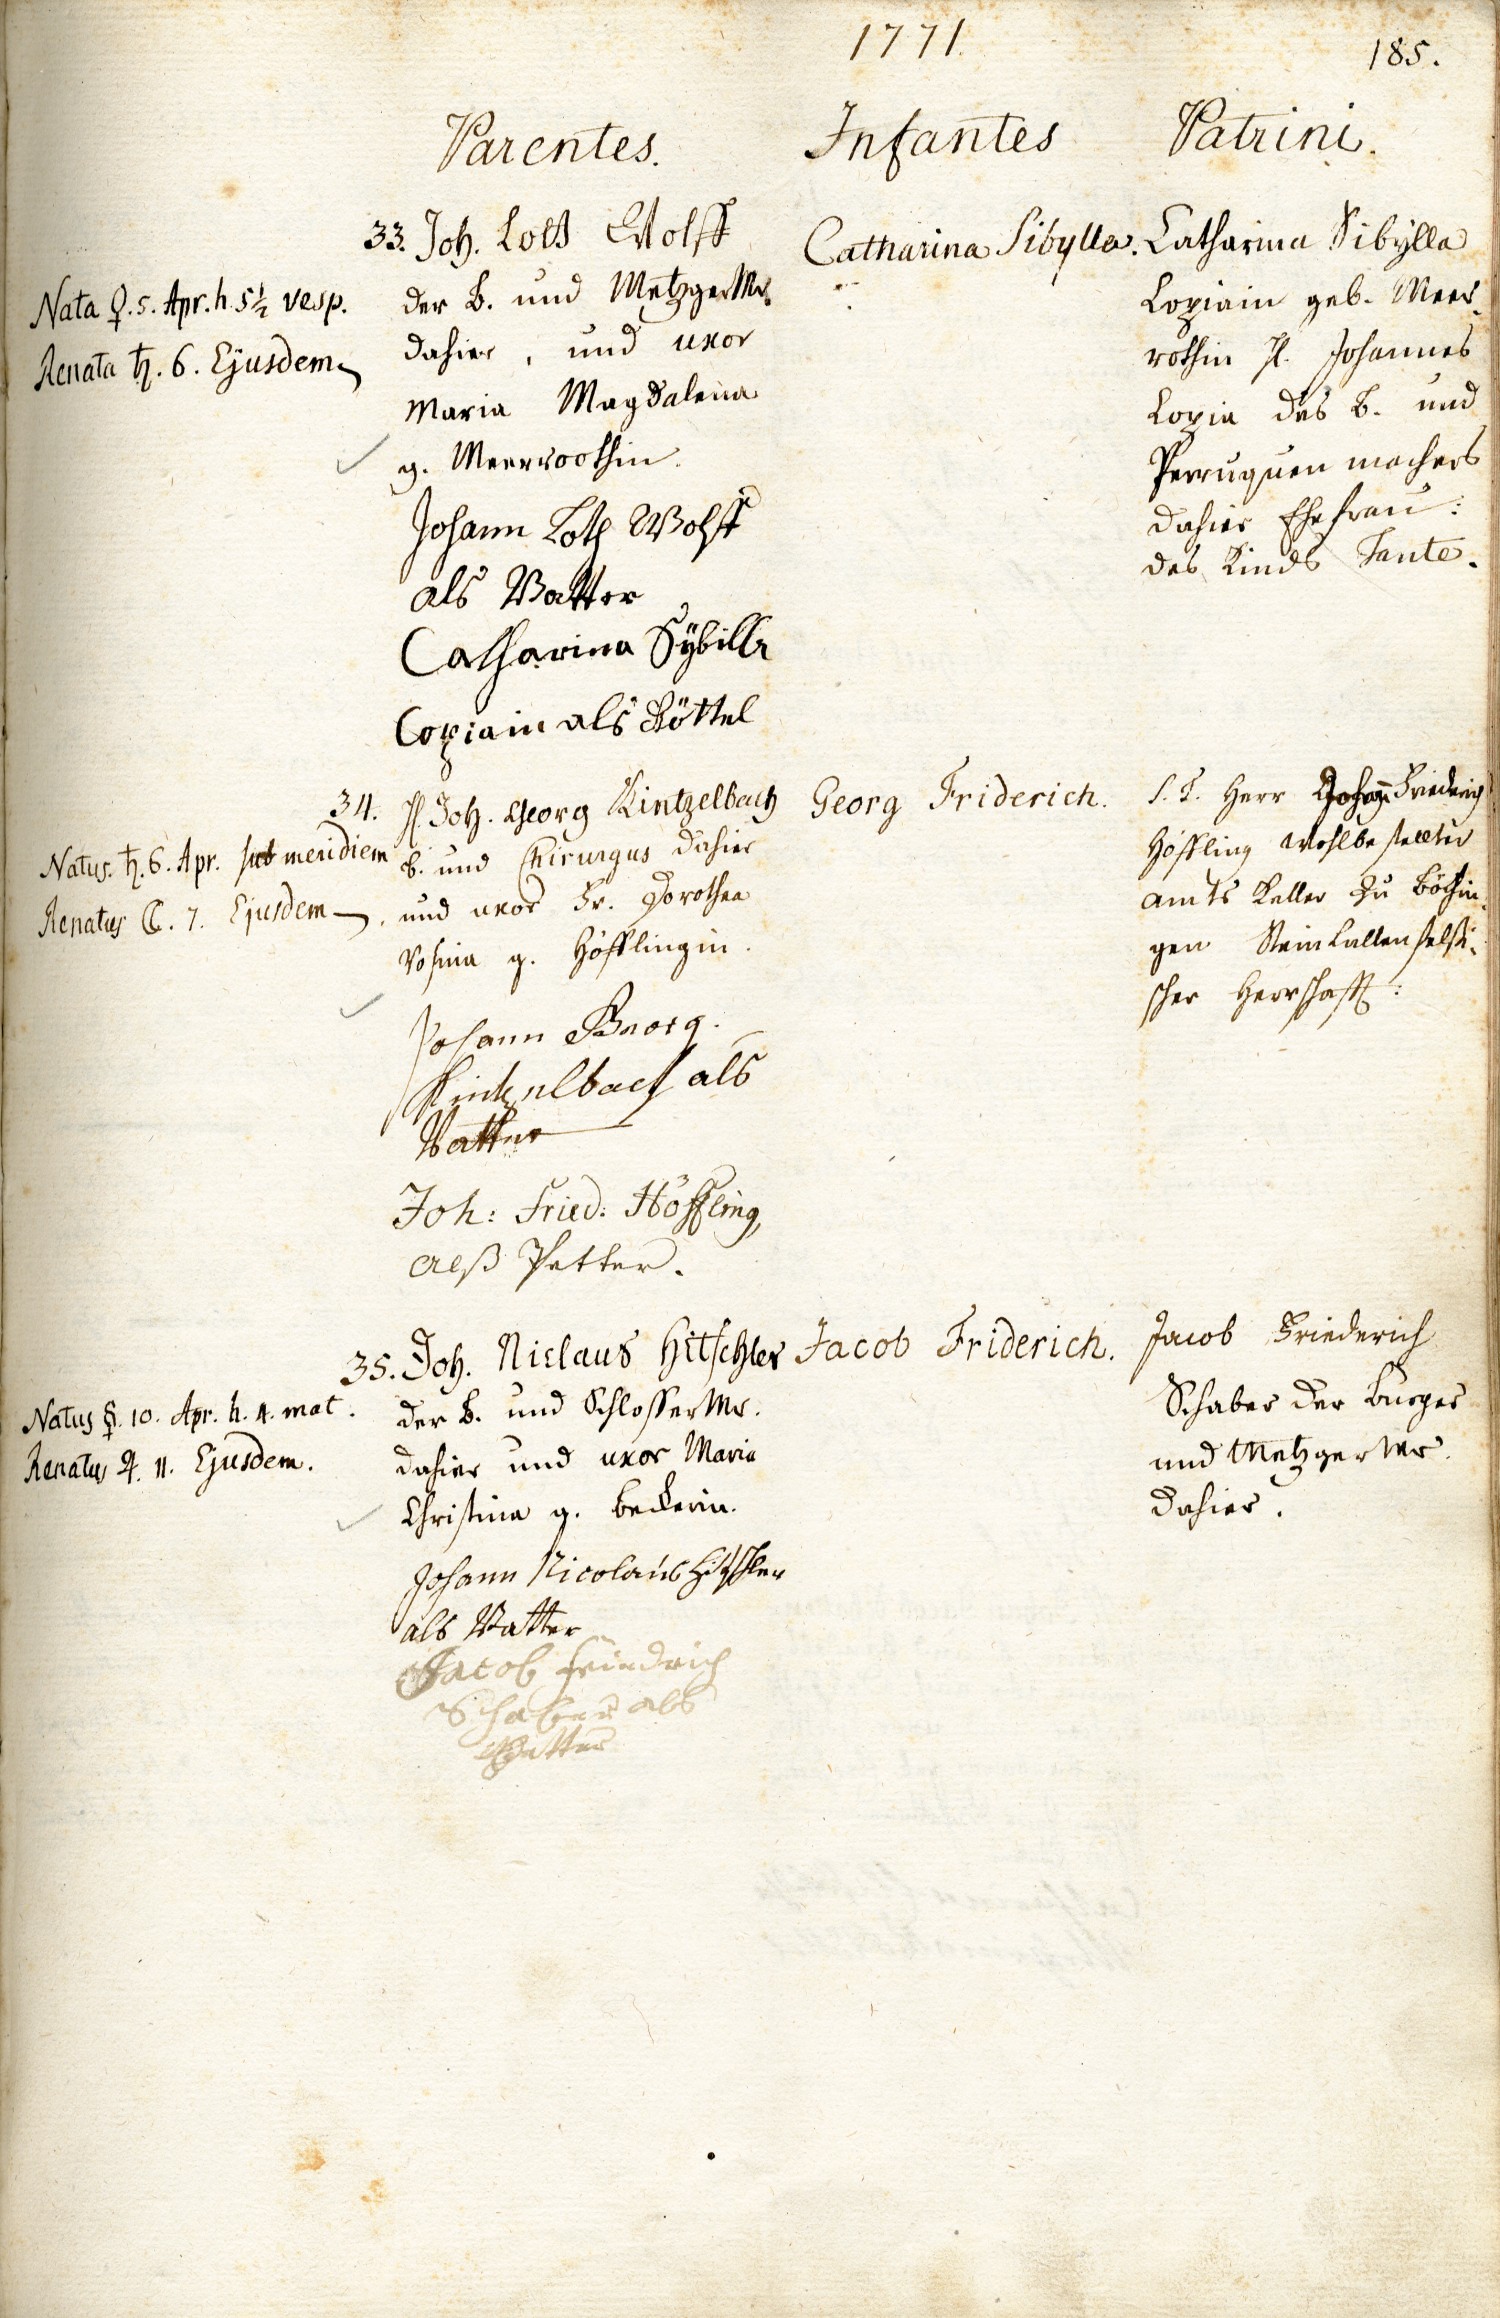 1771.
185.
Parentes.
Infantes
Patrini.
Nata ♀. 5. Apr. h. 5½ vesp.
Renata ♄. 6. Ejusdem
33. Joh. Loth Wolff
der B. und MetzgerMr.
dahier, und uxor
Maria Magdalena
g. Meerroothin.
Johann Loth Wolff
als Vatter
Catharina Sÿbilla
Copiain als Göttel
Catharina Sibylla.
Catharina Sibÿlla
Copiain geb. Meer-
rothin H. Johannes
Copia des B. und
Perruquen machers
dahier Ehefrau:
des Kinds Tante.
Natus. ♄. 6. Apr. sub meridiem
Renatus ☾. 7. Ejusdem
34. H. Joh. Georg Kintzelbach
B. und Chirurgus dahier
und uxor Fr. Dorothea
Rosina g. Höfflingin.
Johann Georg
Kintzelbach als
Vatter
Joh: Fried: Höffling,
alß Petter.
Georg Friderich.
S. T. Herr Johann Friederich
Höffling wohlbestellter
Amts Keller zu Böchin-
gen Steinkallenfelsi-
scher Herrschafft:
Natus ☿. 10. Apr. h. 4. mat.
Renatus ♃. 11. Ejusdem.
35. Joh. Niclaus Hitschler
der B. und SchlosserMr.
dahier und uxor Maria
Christina g. Beckerin.
Johann Nicolaus Hitschler
als Vatter
Jacob Friedrich
Schaber als
Petter
Jacob Friderich.
Jacob Friederich
Schaber der Burger
und MetzgerMr.
dahier.